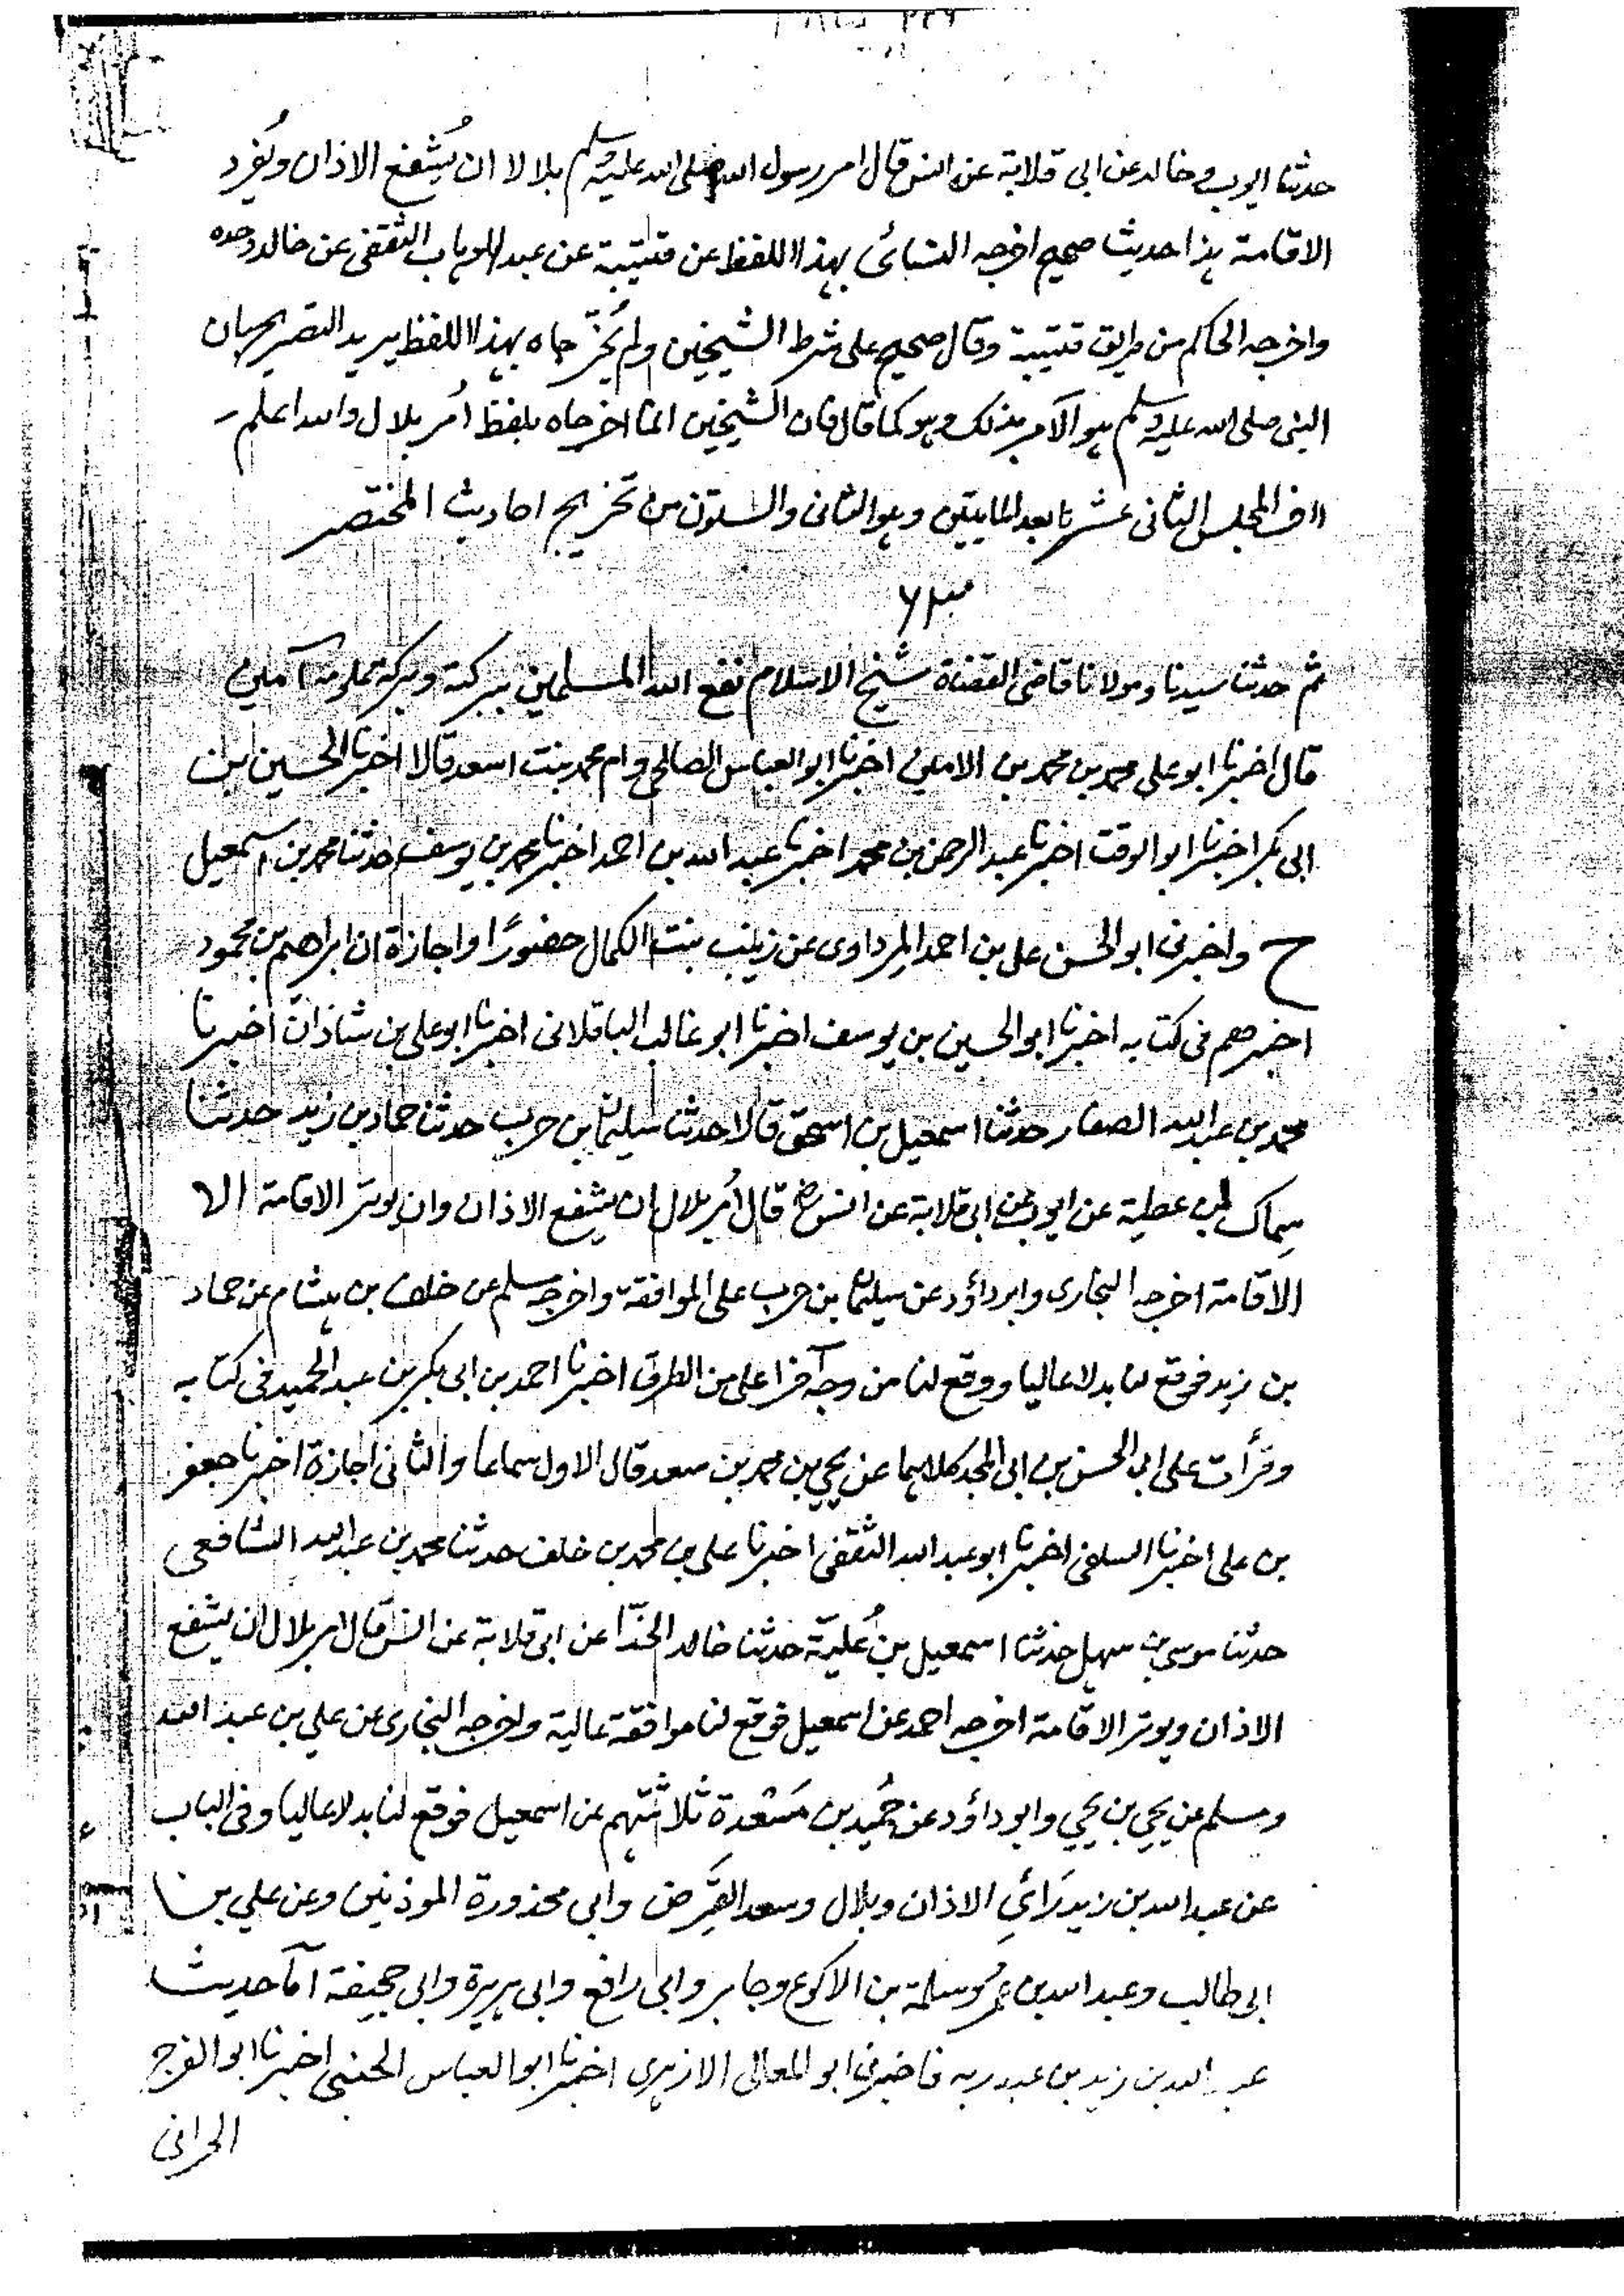 حدثنا ايوب و خالد عن ابى قلابة عن انس قال امر رسول الله صلى الله عليه وسلم بلالا ان يُشفع الاذان ويُفرد
الاقامة هذا حديث صحيح اخرجه النسائى بهذا اللفظ عن قتيبة عن عبد الوهاب الثقفى عن خالد وحده
واخرجه الحاكم من طريق قتيبة وقال صحيح على شرط الشيخين ولم يُخرّجاه بهذا اللفظ يريد التصريح بان
النبى صلى الله عليه وسلم هو الآمر بذلك وهو كما قال فان الشيخين انما اخرجاه بلفظ اُمر بلال والله اعلم
المجلس الثانى عشر بعد المايتين وهو الثانى والستون من تخريج احاديث المختصر
ثم حدثنا سيدنا ومولانا قاضى القضاة شيخ الاسلام نفع الله المسلمين ببركته وبركة علومه آمين
قال اخبرنا ابو على محمد بن محمد بن الامين اخبرنا ابو العباس الصالحى وام محمد بنت اسعد قالا اخبرنا الحسين بن
ابى بكر اخبرنا ابو الوقت اخبرنا عبد الرحمن بن محمد اخبرنا عبد الله بن احمد اخبرنا محمد بن يوسف حدثنا محمد بن اسمعيل
ح واخبرنى ابو الحسن على بن احمد المرداوى عن زينب بنت الكمال حضورًا واجازة ان ابراهيم بن محمود
اخبرهم فى كتابه اخبرنا ابو الحسين بن يوسف اخبرنا ابو غالب الباقلانى اخبرنا ابو على بن شاذان اخبرنا
محمد بن عبد الله الصفار حدثنا اسمعيل بن اسحق قالا حدثنا سليمان بن حرب حدثنا حماد بن زيد حدثنا
سماك بن عطية عن ايوب عن ابى قلابة عن انس قال اُمر بلال ان يشفع الاذان وان يوتر الاقامة الا
الاقامة اخرجه البخارى وابو داؤد عن سليمان بن حرب على الموافقة واخرجه مسلم عن خلف بن هشام عن حماد
بن زيد فوقع لنا بدلا عاليا ووقع لنا من وجه آخر اعلى من الطرق اخبرنا احمد بن ابى بكر بن عبد الحميد فى كتابه
وقرأت على ابى الحسن بن ابى المجد كلاهما عن يحيى بن محمد بن سعد قال الاول سماعا والثانى اجازة اخبرنا جعفر
بن على اخبرنا السلفى اخبرنا ابو عبد الله الثقفى اخبرنا على بن محمد بن خلف حدثنا محمد بن عبد الله الشافعى
حدثنا موسى بن سهل حدثنا اسمعيل بن عُليّة حدثنا خالد الحذّا عن ابى قلابة عن انس قال امر بلال ان يشفع
الاذان ويوتر الاقامة اخرجه احمد عن اسمعيل فوقع لنا موافقة عالية واخرجه البخارى عن على بن عبد الله
ومسلم عن يحيى بن يحيى وابو داؤد عن حُميد بن مَسْعدة ثلاثتهم عن اسمعيل فوقع لنا بدلا عاليا وفى الباب
عن عبد الله بن زيد رَائي الاذان وبلال وسعد القَرَض وابى محذورة الموذنين وعن على بن
ابى طالب وعبد الله بن عمر وسلمة بن الاكوع وجابر وابى رافع وابى هريرة وابى جحيفة اما حديث
عبد الله بن زيد بن عبد ربه فاخبرنى ابو المعالى الازهرى اخبرنا ابو العباس الحنبلى اخبرنا ابو الفرج
الحرانى